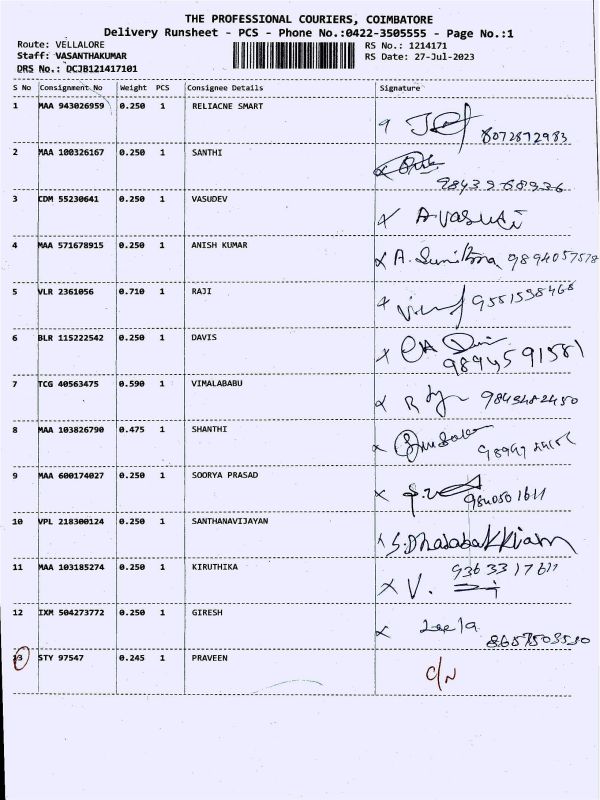 THE PROFESSIONAL COURIERS, COIMBATORE
Delivery Runsheet - PCS - Phone No.:0422-3505555 - Page No.:1
Route: VELLALORE
Staff: VASANTHAKUMAR
DRS No.: DCJB121417101
RS No.: 1214171
RS Date: 27-Jul-2023
S No Consignment No Weight PCS Consignee Details Signature
1 MAA 943026959 0.250 1 RELIACNE SMART
8072872983
2 MAA 100326167 0.250 1 SANTHI
3 CDM 55230641 0.250 1 VASUDEV
4 MAA 571678915 0.250 1 ANISH KUMAR
9894057578
5 VLR 2361056 0.710 1 RAJI
9551598468
6 BLR 115222542 0.250 1 DAVIS
9894591581
7 TCG 40563475 0.590 1 VIMALABABU
8 MAA 103826790 0.475 1 SHANTHI
9 MAA 600174027 0.250 1 SOORYA PRASAD
9840501611
10 VPL 218300124 0.250 1 SANTHANAVIJAYAN
S.Dhalabakkiam
11 MAA 103185274 0.250 1 KIRUTHIKA
9363317611
V.
12 IXM 504273772 0.250 1 GIRESH
Leela
8657503530
13 STY 97547 0.245 1 PRAVEEN C/N